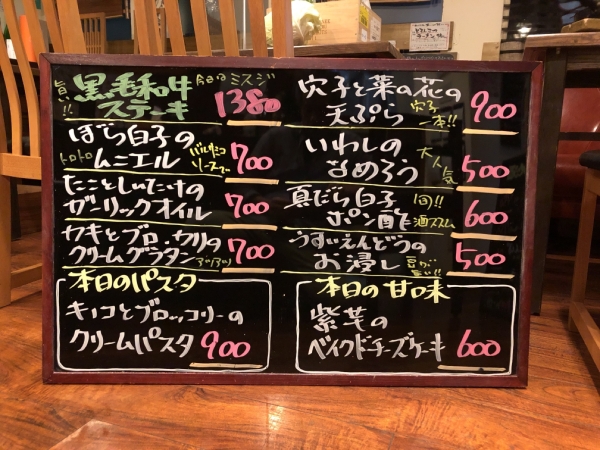 旨い!!
黒毛和牛 今日はミスジ
ステーキ 1380
ぼら白子の
トロトロ ムニエル バルサミコソースで 700
たことしいたけの
ガーリックオイル 700
カキとブロッコリの
クリームグラタン アツアツ 700
本日のパスタ
キノコとブロッコリーの
クリームパスタ 900
穴子と菜の花の
天ぷら 穴子一本!! 900
いわしの
なめろう 大人気 500
真だら白子
ポン酢 旬!! 酒ススム 600
うすいえんどうの
お浸し 500
本日の甘味
紫芋の
ベイクドチーズケーキ 600